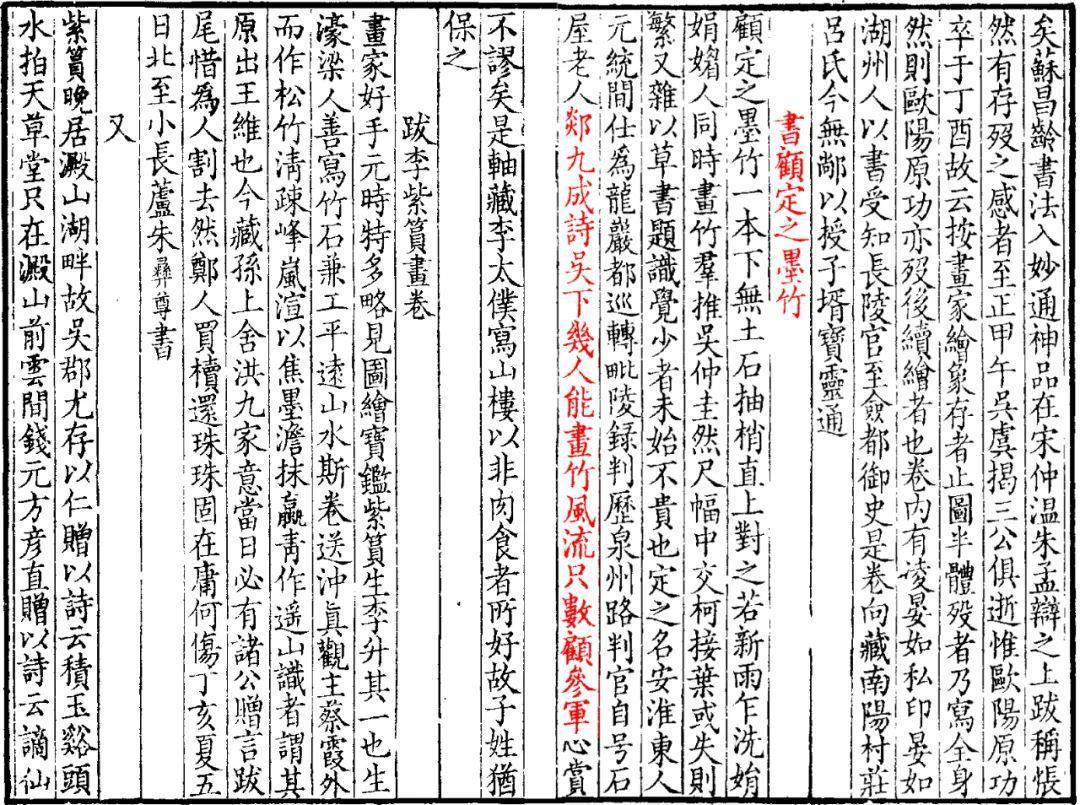 矣蘇昌齡書法入妙通神品在宋仲温朱孟辯之上跋稱悵
然有存歿之感者至正甲午吳虞揭三公俱逝惟歐陽原功
卒于丁酉故云按畫家繪象存者止圖半體歿者乃寫全身
然則歐陽原功亦歿後續繪者也卷内有凌晏如私印晏如
湖州人以書受知長陵官至僉都御史是卷向藏南陽村莊
呂氏今無鄰以授子壻寶靈通
書顧定之墨竹
顧定之墨竹一本下無土石抽梢直上對之若新雨乍洗娟
娟媚人同時畫竹羣推吳仲圭然尺幅中交柯接葉或失則
繁又雜以草書題識覺少者未始不貴也定之名安淮東人
元統間仕為龍巖都巡轉毗陵録判歷泉州路判官自号石
屋老人郯九成詩吳下幾人能畫竹風流只數顧參軍心賞
不謬矣是軸藏李太僕寫山樓以非肉食者所好故子姓猶
保之
跋李紫篔畫卷
畫家好手元時特多略見圖繪寶鑑紫篔生李升其一也生
濠梁人善寫竹石兼工平逺山水斯卷送沖真觀主蔡霞外
而作松竹清疎峰嵐渲以焦墨澹抹蠃青作遥山識者謂其
原出王維也今藏孫上舍洪九家意當日必有諸公贈言跋
尾惜為人割去然鄭人買櫝還珠珠固在庸何傷丁亥夏五
日北至小長蘆朱彝尊書
又
紫篔晚居澱山湖畔故吳郡尤存以仁贈以詩云積玉谿頭
水拍天草堂只在澱山前雲間錢元方彦直贈以詩云謫仙